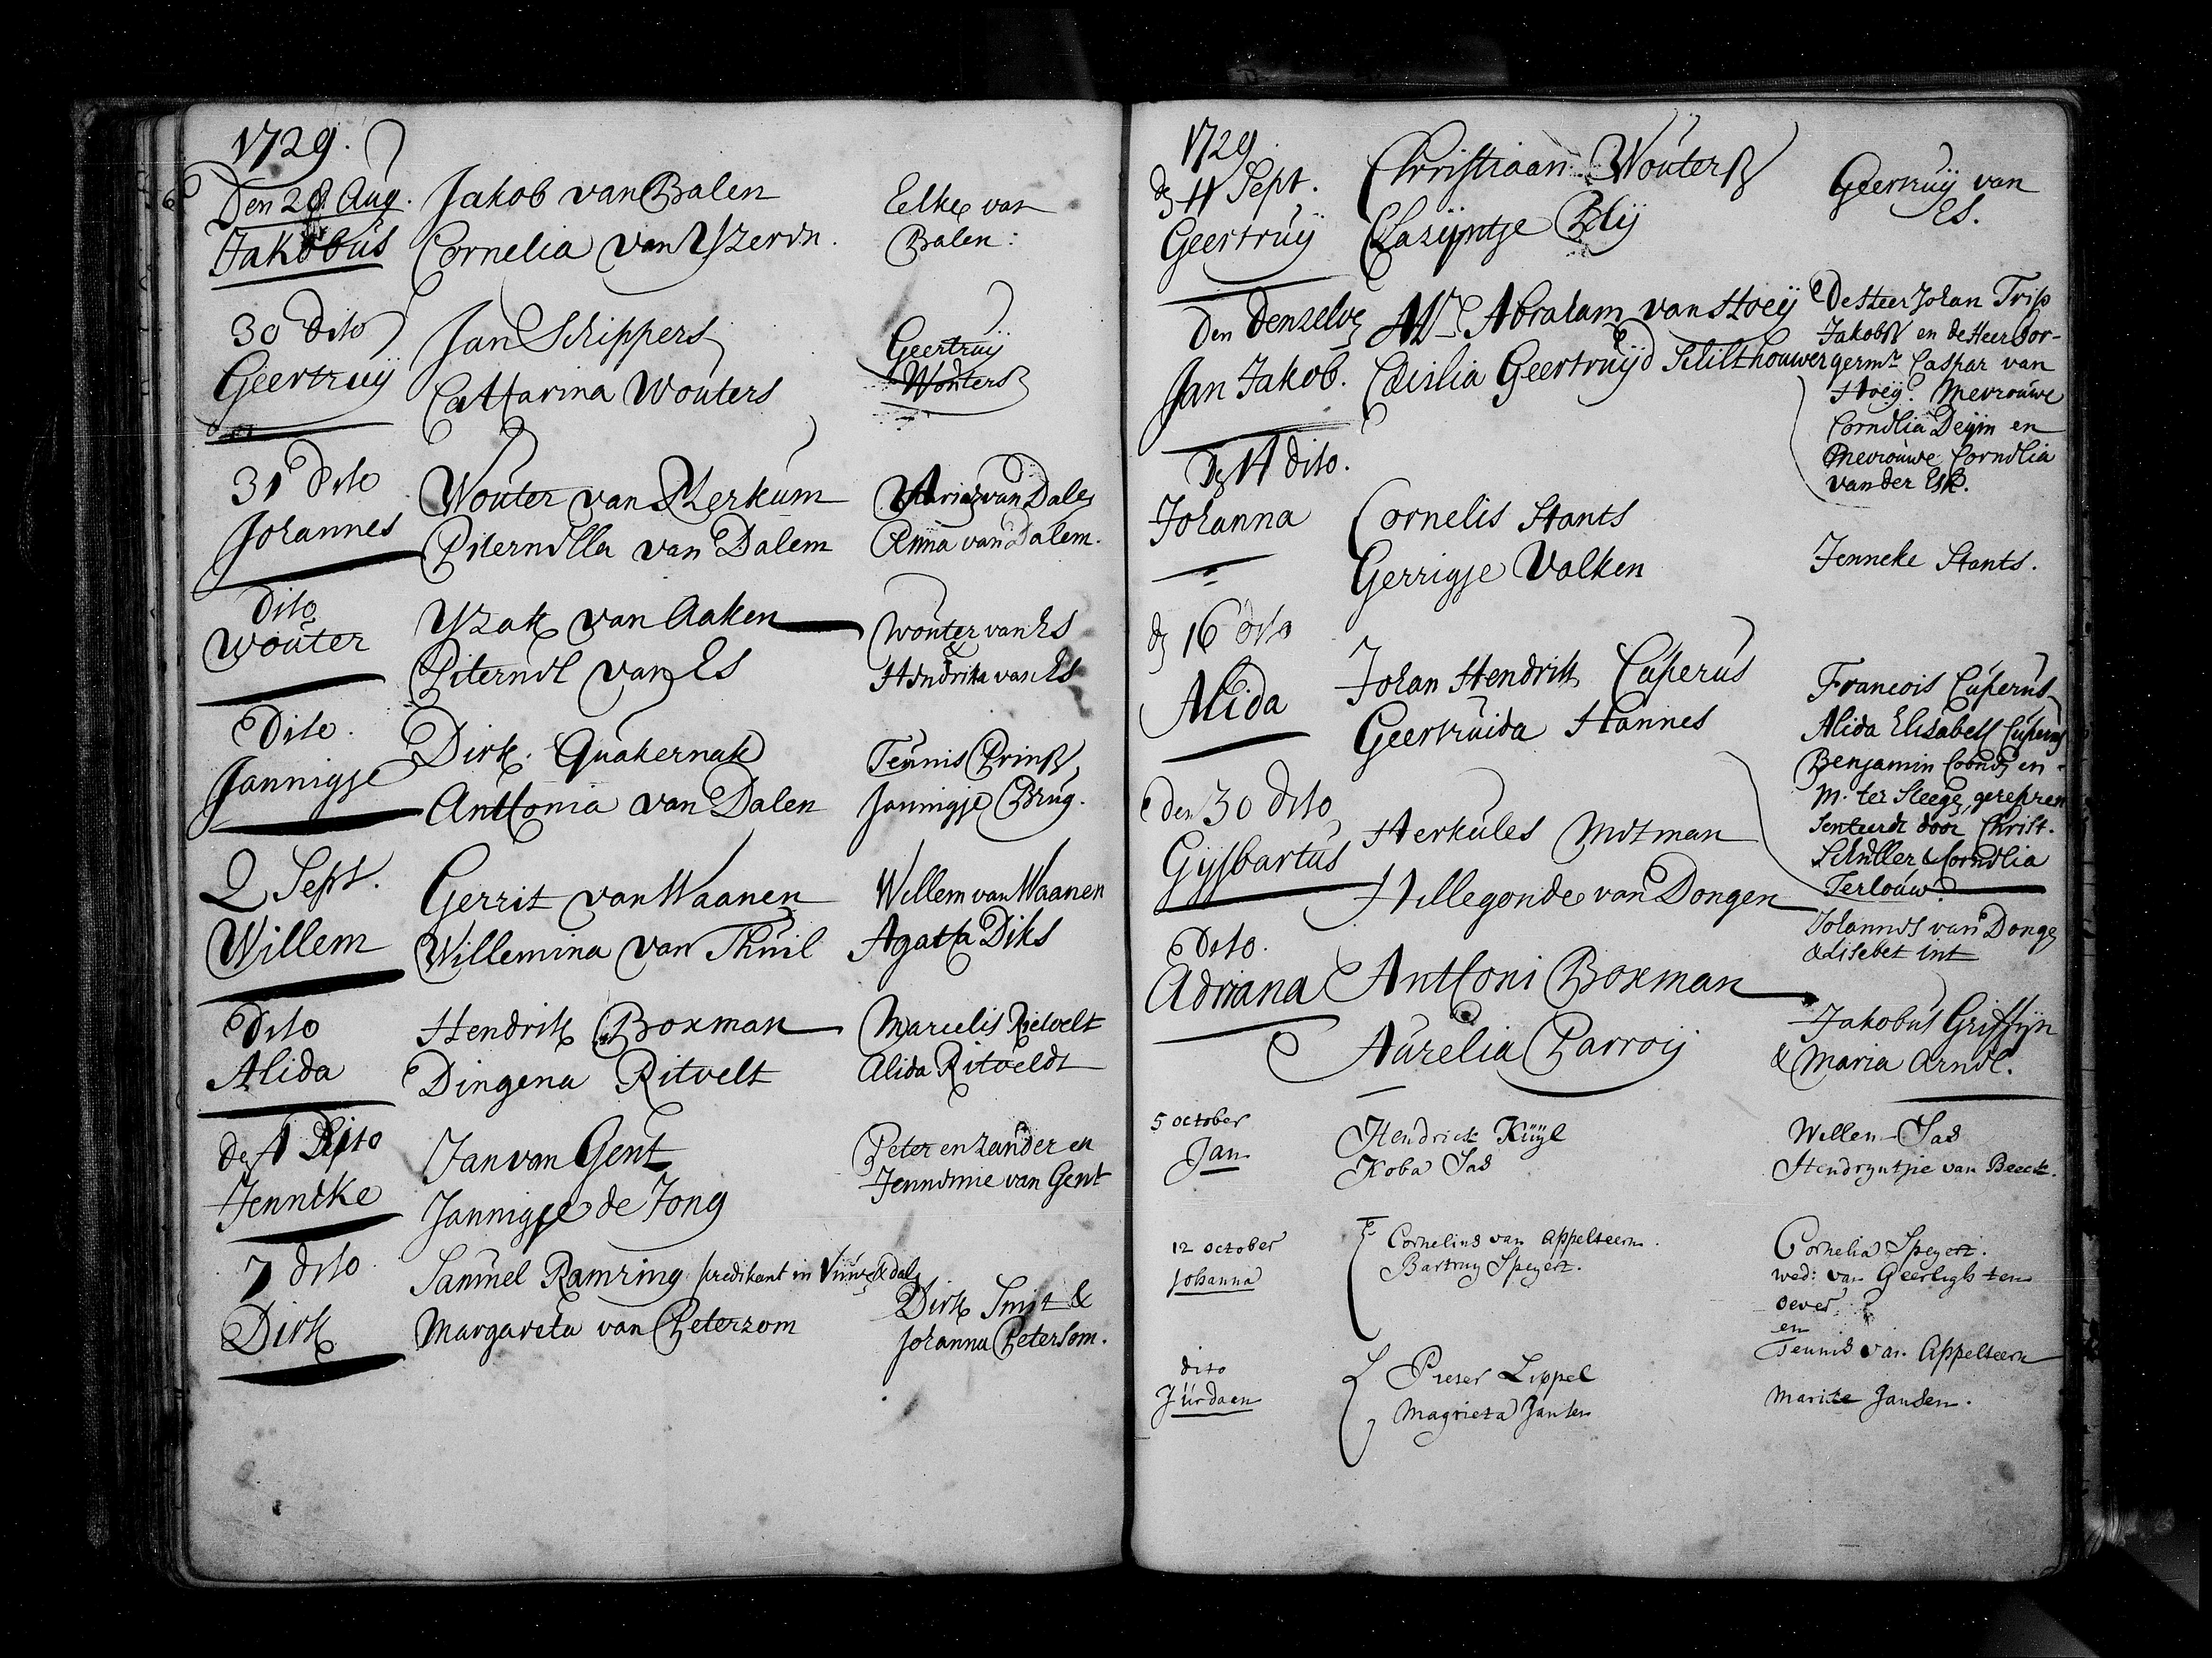 1729.
Den 28 Aug. Jakob van Balen Eelke van
Jakobus Cornelia van Yzeren. Balen:
30 Dito Jan Schippers Geertruij
Geertruij Catharina Wouters Wouters
31 Dito Wouter van Sterkum van Dale
Johannes Piternella van Dalem Anna van Dalem.
Dito Yzak van Aaken Wouter van Es
Wouter Piternel van Es & Hendrika van Es
Dito. Dirk Quakernak Teunis Prins
Jannigje Anthonia van Dalen Jannigje Brug.
2 Sept. Gerrit van Maanen Willem van Maanen
Willem Willemina van Thuil Agatha Diks
Dito Hendrik Boxman Marcelis Rietvelt
Alida Dingena Ritvelt Alida Ritveldt
de 4 Jan van Gent Peter en zander en
Jenneke Jannigje de Jong Jennemie van Gent
7 dito Samuel Ramring predikant in
Dirk Margareta van Peterzom Dirk Smit &
Johanna Petersom.
1729
dz 11 Sept. Christiaan Wouters Geertruij van
Geertruij Clazijntje Blij Es.
Den Denzelve Mr. Abraham van Hoeij De Heer Johan Trip
Jan Jakob. Cæcilia Geertruijd Schilthouwer Jakobsz en de Heer Bor-
germr Caspar van
Hoeij. Mevrouwe
Cornelia Deijm en
Mevrouwe Cornelia
van der Esch.
dz 14 dito.
Johanna Cornelis Stants
Gerrigje Valken Jenneke Stants.
dz 16 dito
Alida Johan Hendrik Cuperus Francois Cuperus
Geertruida Hannes Alida Elisabeth Cuperus
Benjamin en
M. ter Steege, gerepren
senteert door Christ.
Schuller & Cornelia
Terlouw.
Den 30 dito Herkules Metman
Gijsbartus Hillegonde van Dongen Johannes van Donge
& Lisebet int
Dito.
Adriana Anthoni Boxman Jakobus Griffijn
Aurelia Parroij & Maria Arndt.
5 october Hendrick Kuijl Willem Sas
Jan Koba Sas Hendryntjie van Beeck.
12 october Cornelius van Appelteern. Cornelia Speyert.
Johanna Bartruy Speyert. wed: van Geerligh ten
oever
en
Teunis van Appelteern
dito Pieter Lippel
Jürdaen Magrieta Jansen Maritie Jansen.